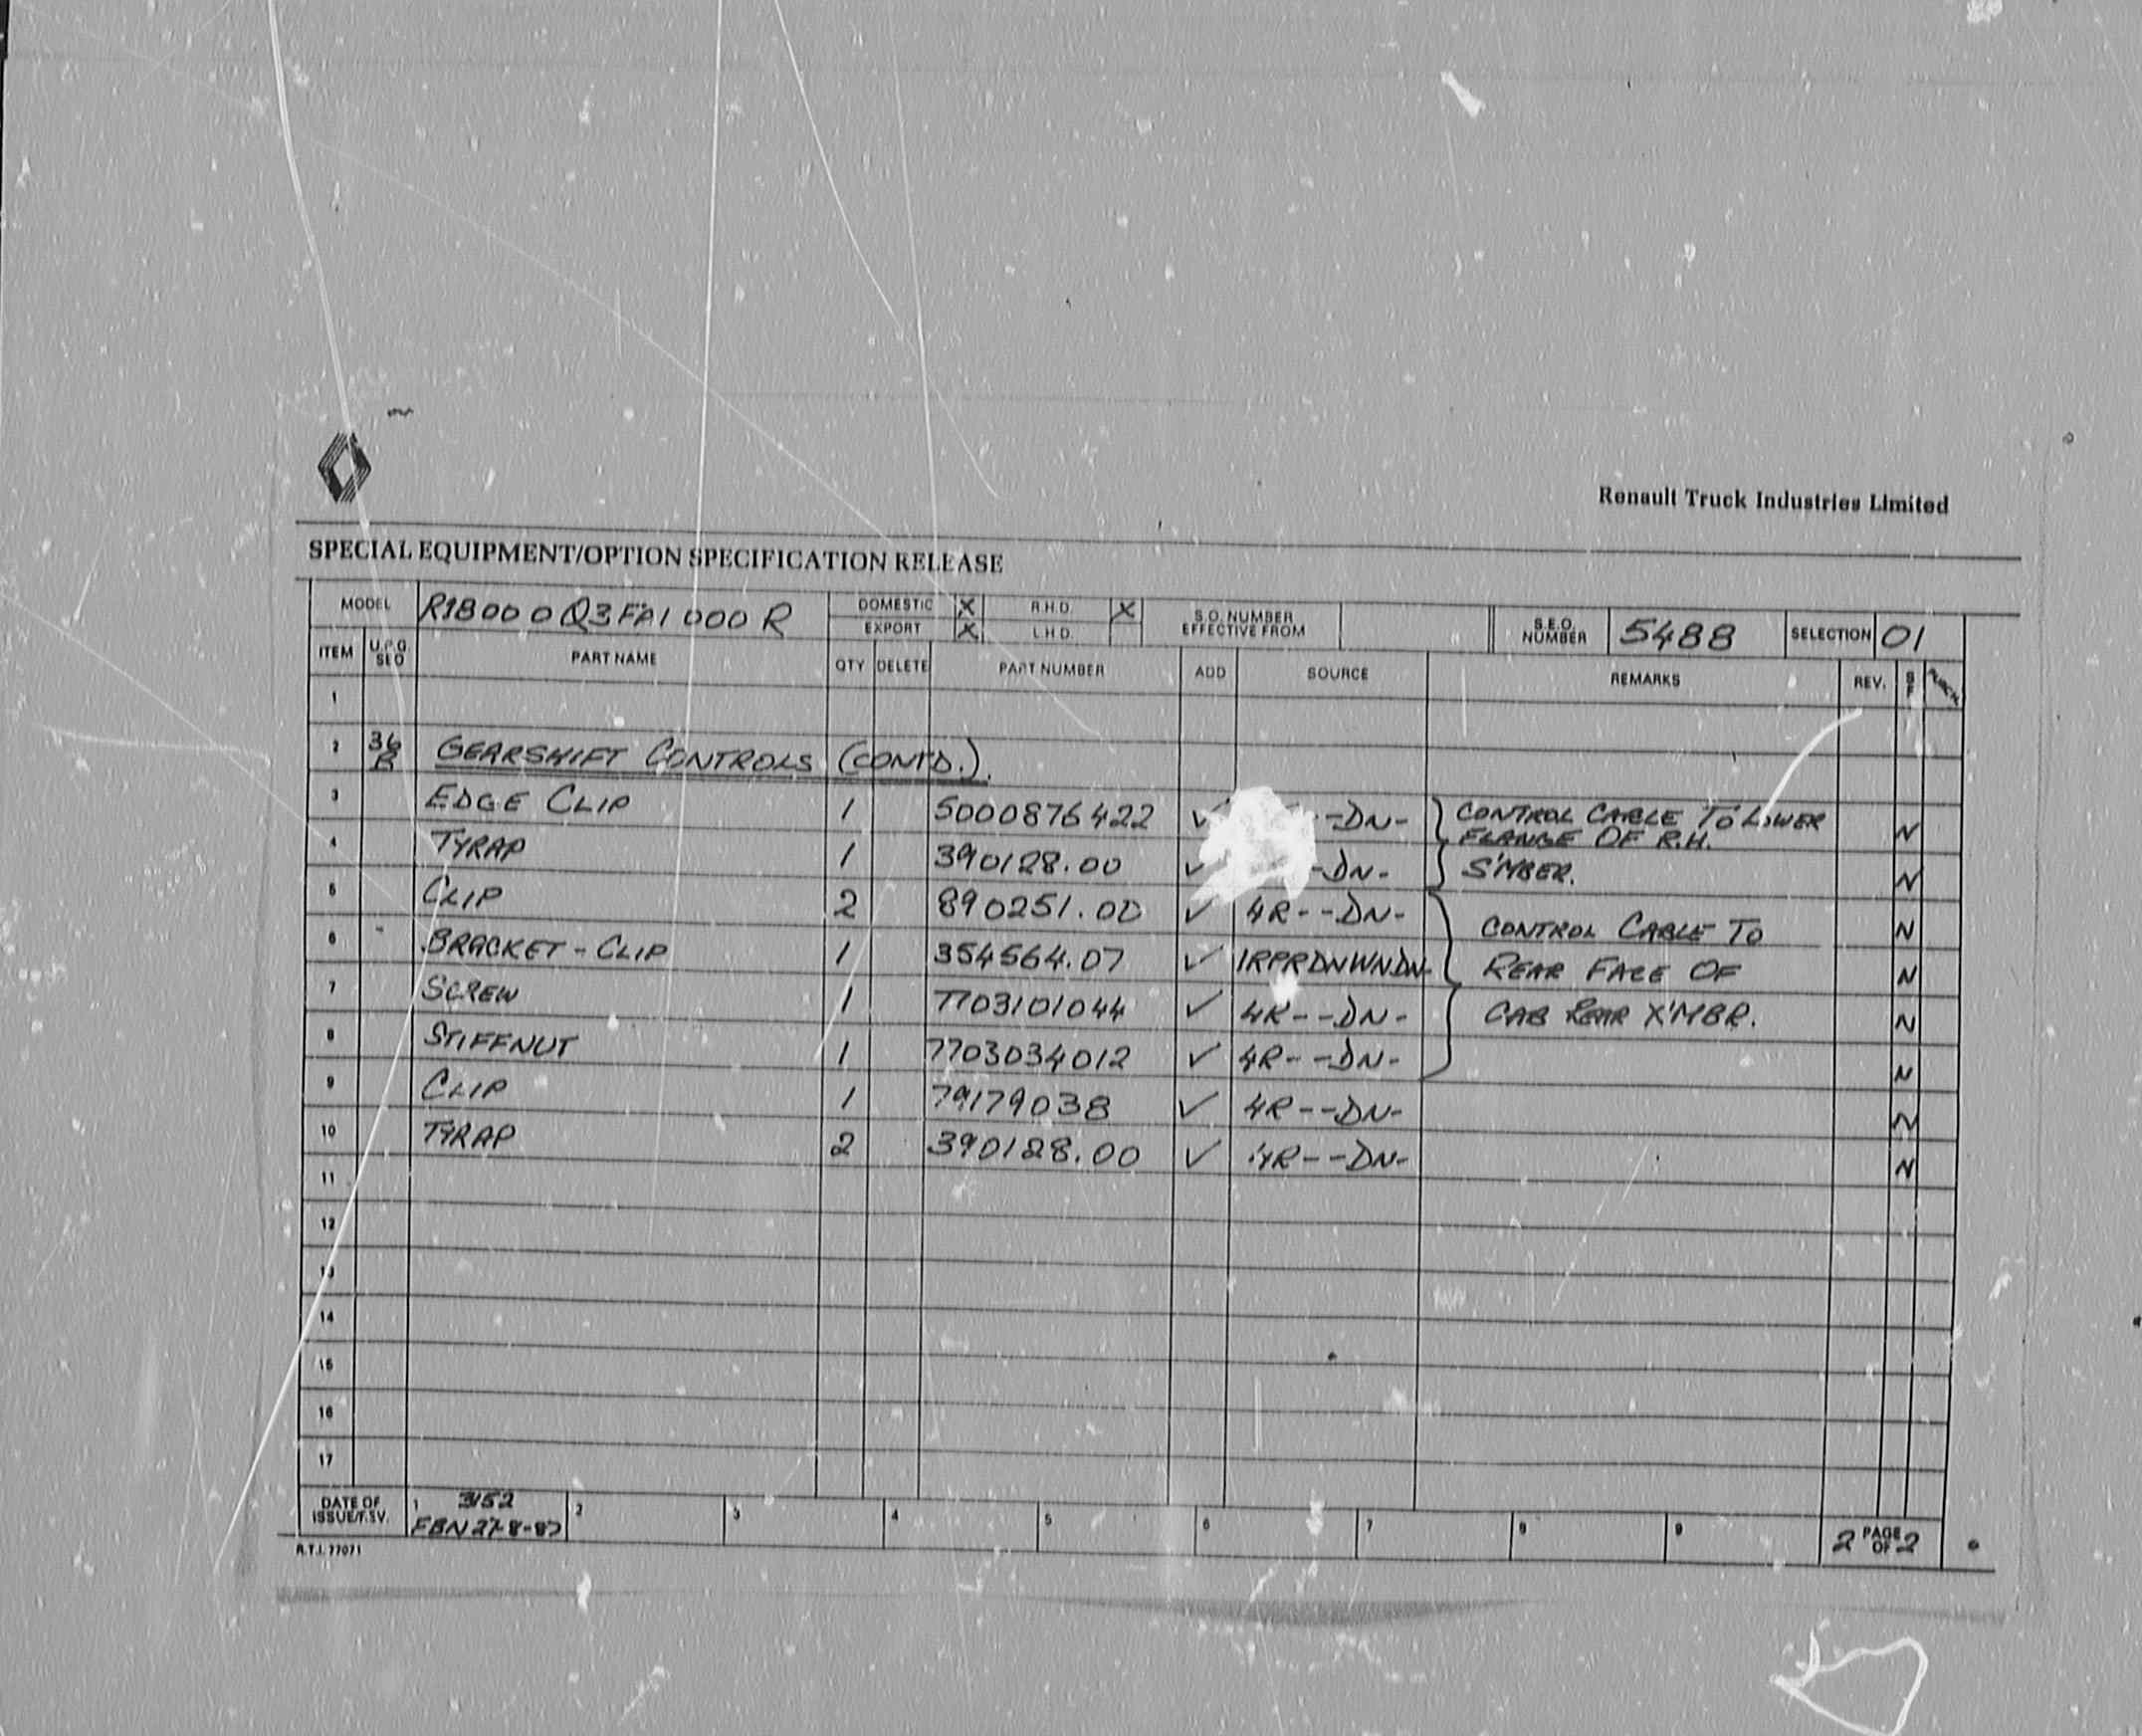 Renault Truck Industries Limited
SPECIAL EQUIPMENT/OPTION SPECIFICATION RELEASE
MODEL R1B00 0 Q3FA1 000 R DOMESTIC X R.H.D. X S.O. NUMBER EFFECTIVE FROM S.E.O. NUMBER 5488 SELECTION 01
EXPORT X L.H.D.
ITEM U.P.G. SEQ PART NAME QTY DELETE PART NUMBER ADD SOURCE REMARKS REV. S F PURCH
1
2 36 B GEARSHIFT CONTROLS (CONT'D.).
3 EDGE CLIP 1 5000876422 ✓ --DN- CONTROL CABLE TO LOWER N
FLANGE OF R.H.
4 TYRAP 1 390128.00 ✓ -DN- S'MBER. N
5 CLIP 2 890251.00 ✓ 4R--DN- CONTROL CABLE TO N
6 BRACKET-CLIP 1 354564.07 ✓ IRPRDNWNDN- REAR FACE OF N
7 SCREW 1 7703101044 ✓ 4R--DN- CAB REAR X'MBR. N
8 STIFFNUT 1 7703034012 ✓ 4R--DN- N
9 CLIP 1 79179038 ✓ 4R--DN- N
10 TYRAP 2 390128.00 ✓ 4R--DN- N
11
12
13
14
15
16
17
DATE OF ISSUE/F.S.V. 1 3152 2 3 4 5 6 7 8 9 2 PAGE OF 2
FBN 27-8-87
R.T.I. 77071